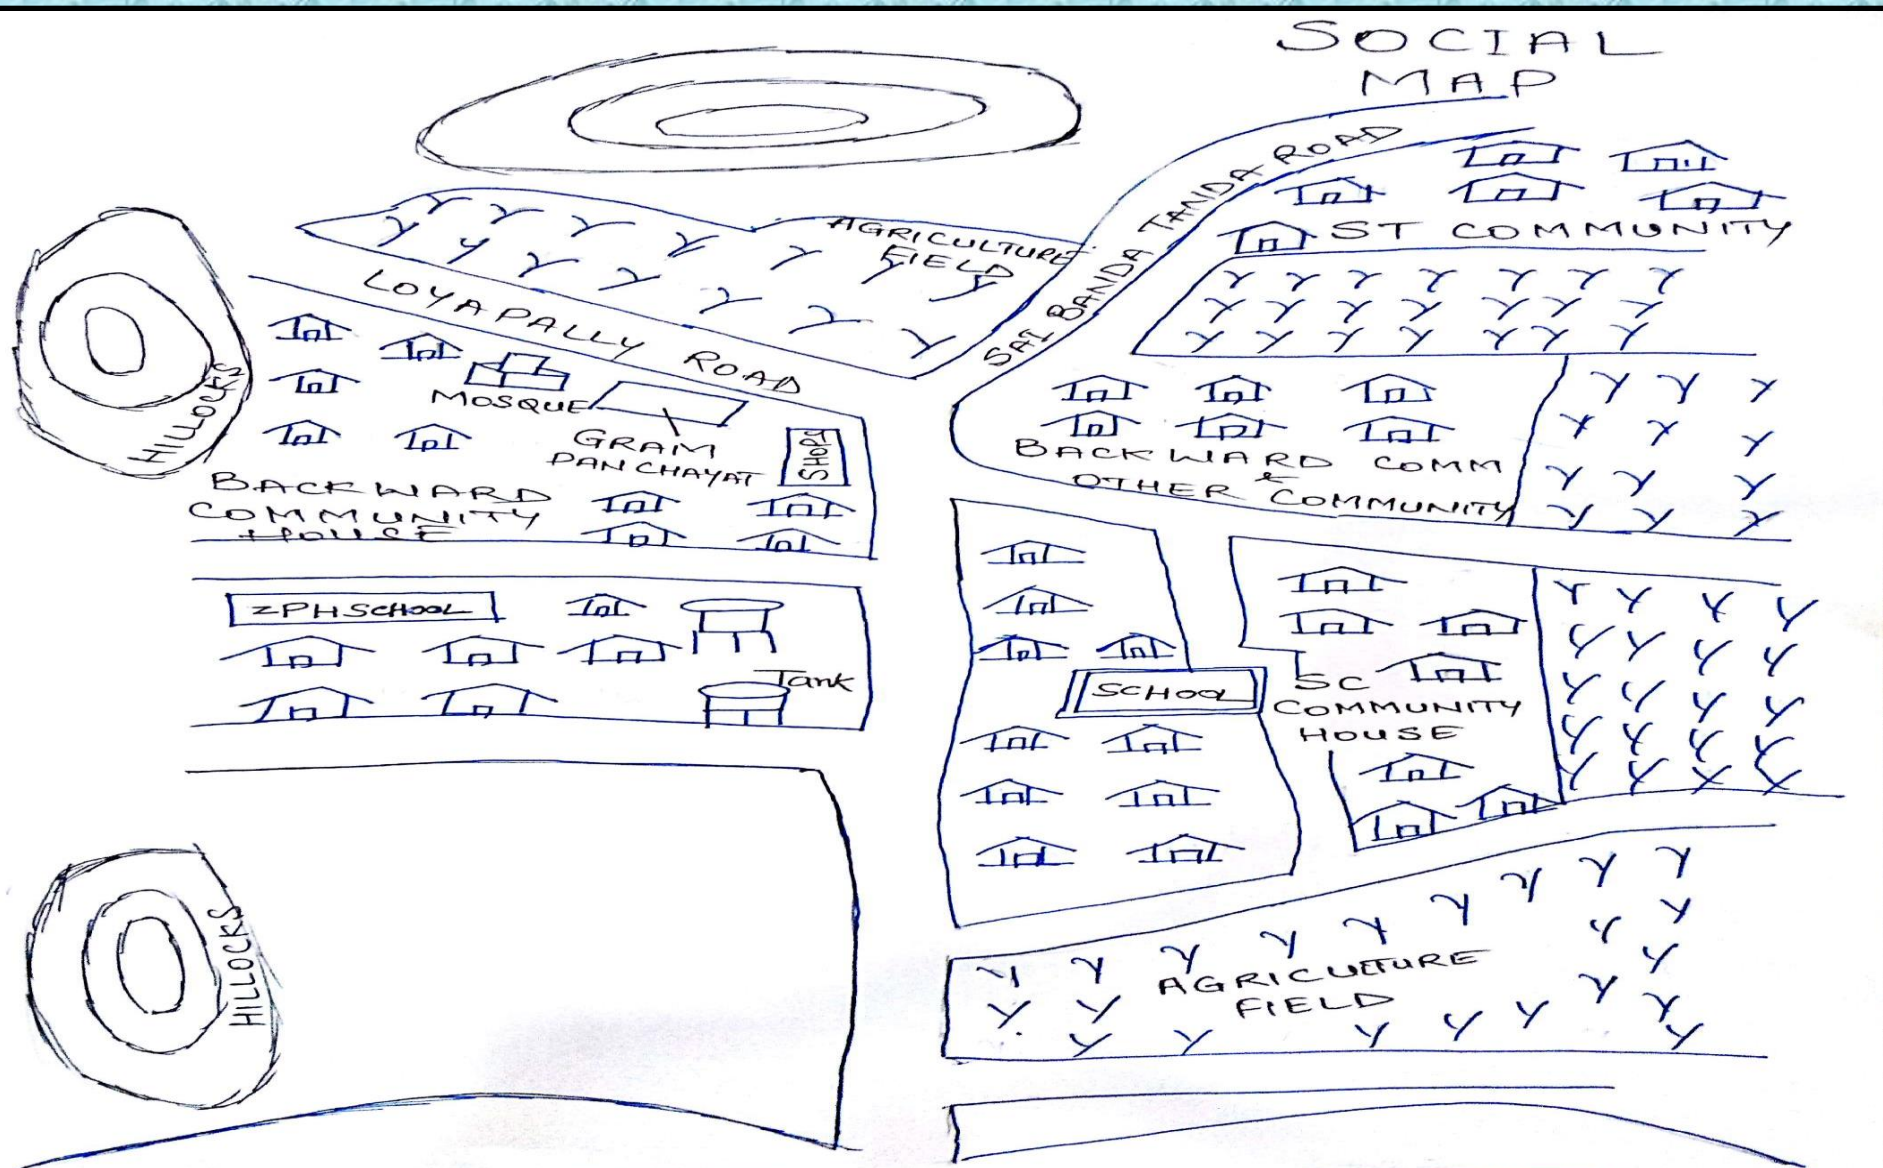 SOCIAL
MAP
SAI BANDA TANDA ROAD
AGRICULTURE
FIELD
ST COMMUNITY
LOYAPALLY ROAD
HILLOCKS
MOSQUE
GRAM
PANCHAYAT
SHOPS
BACKWARD
COMMUNITY
HOUSE
BACKWARD COMM
&
OTHER COMMUNITY
ZPHSCHOOL
Tank
SCHOOL
SC
COMMUNITY
HOUSE
HILLOCKS
AGRICULTURE
FIELD